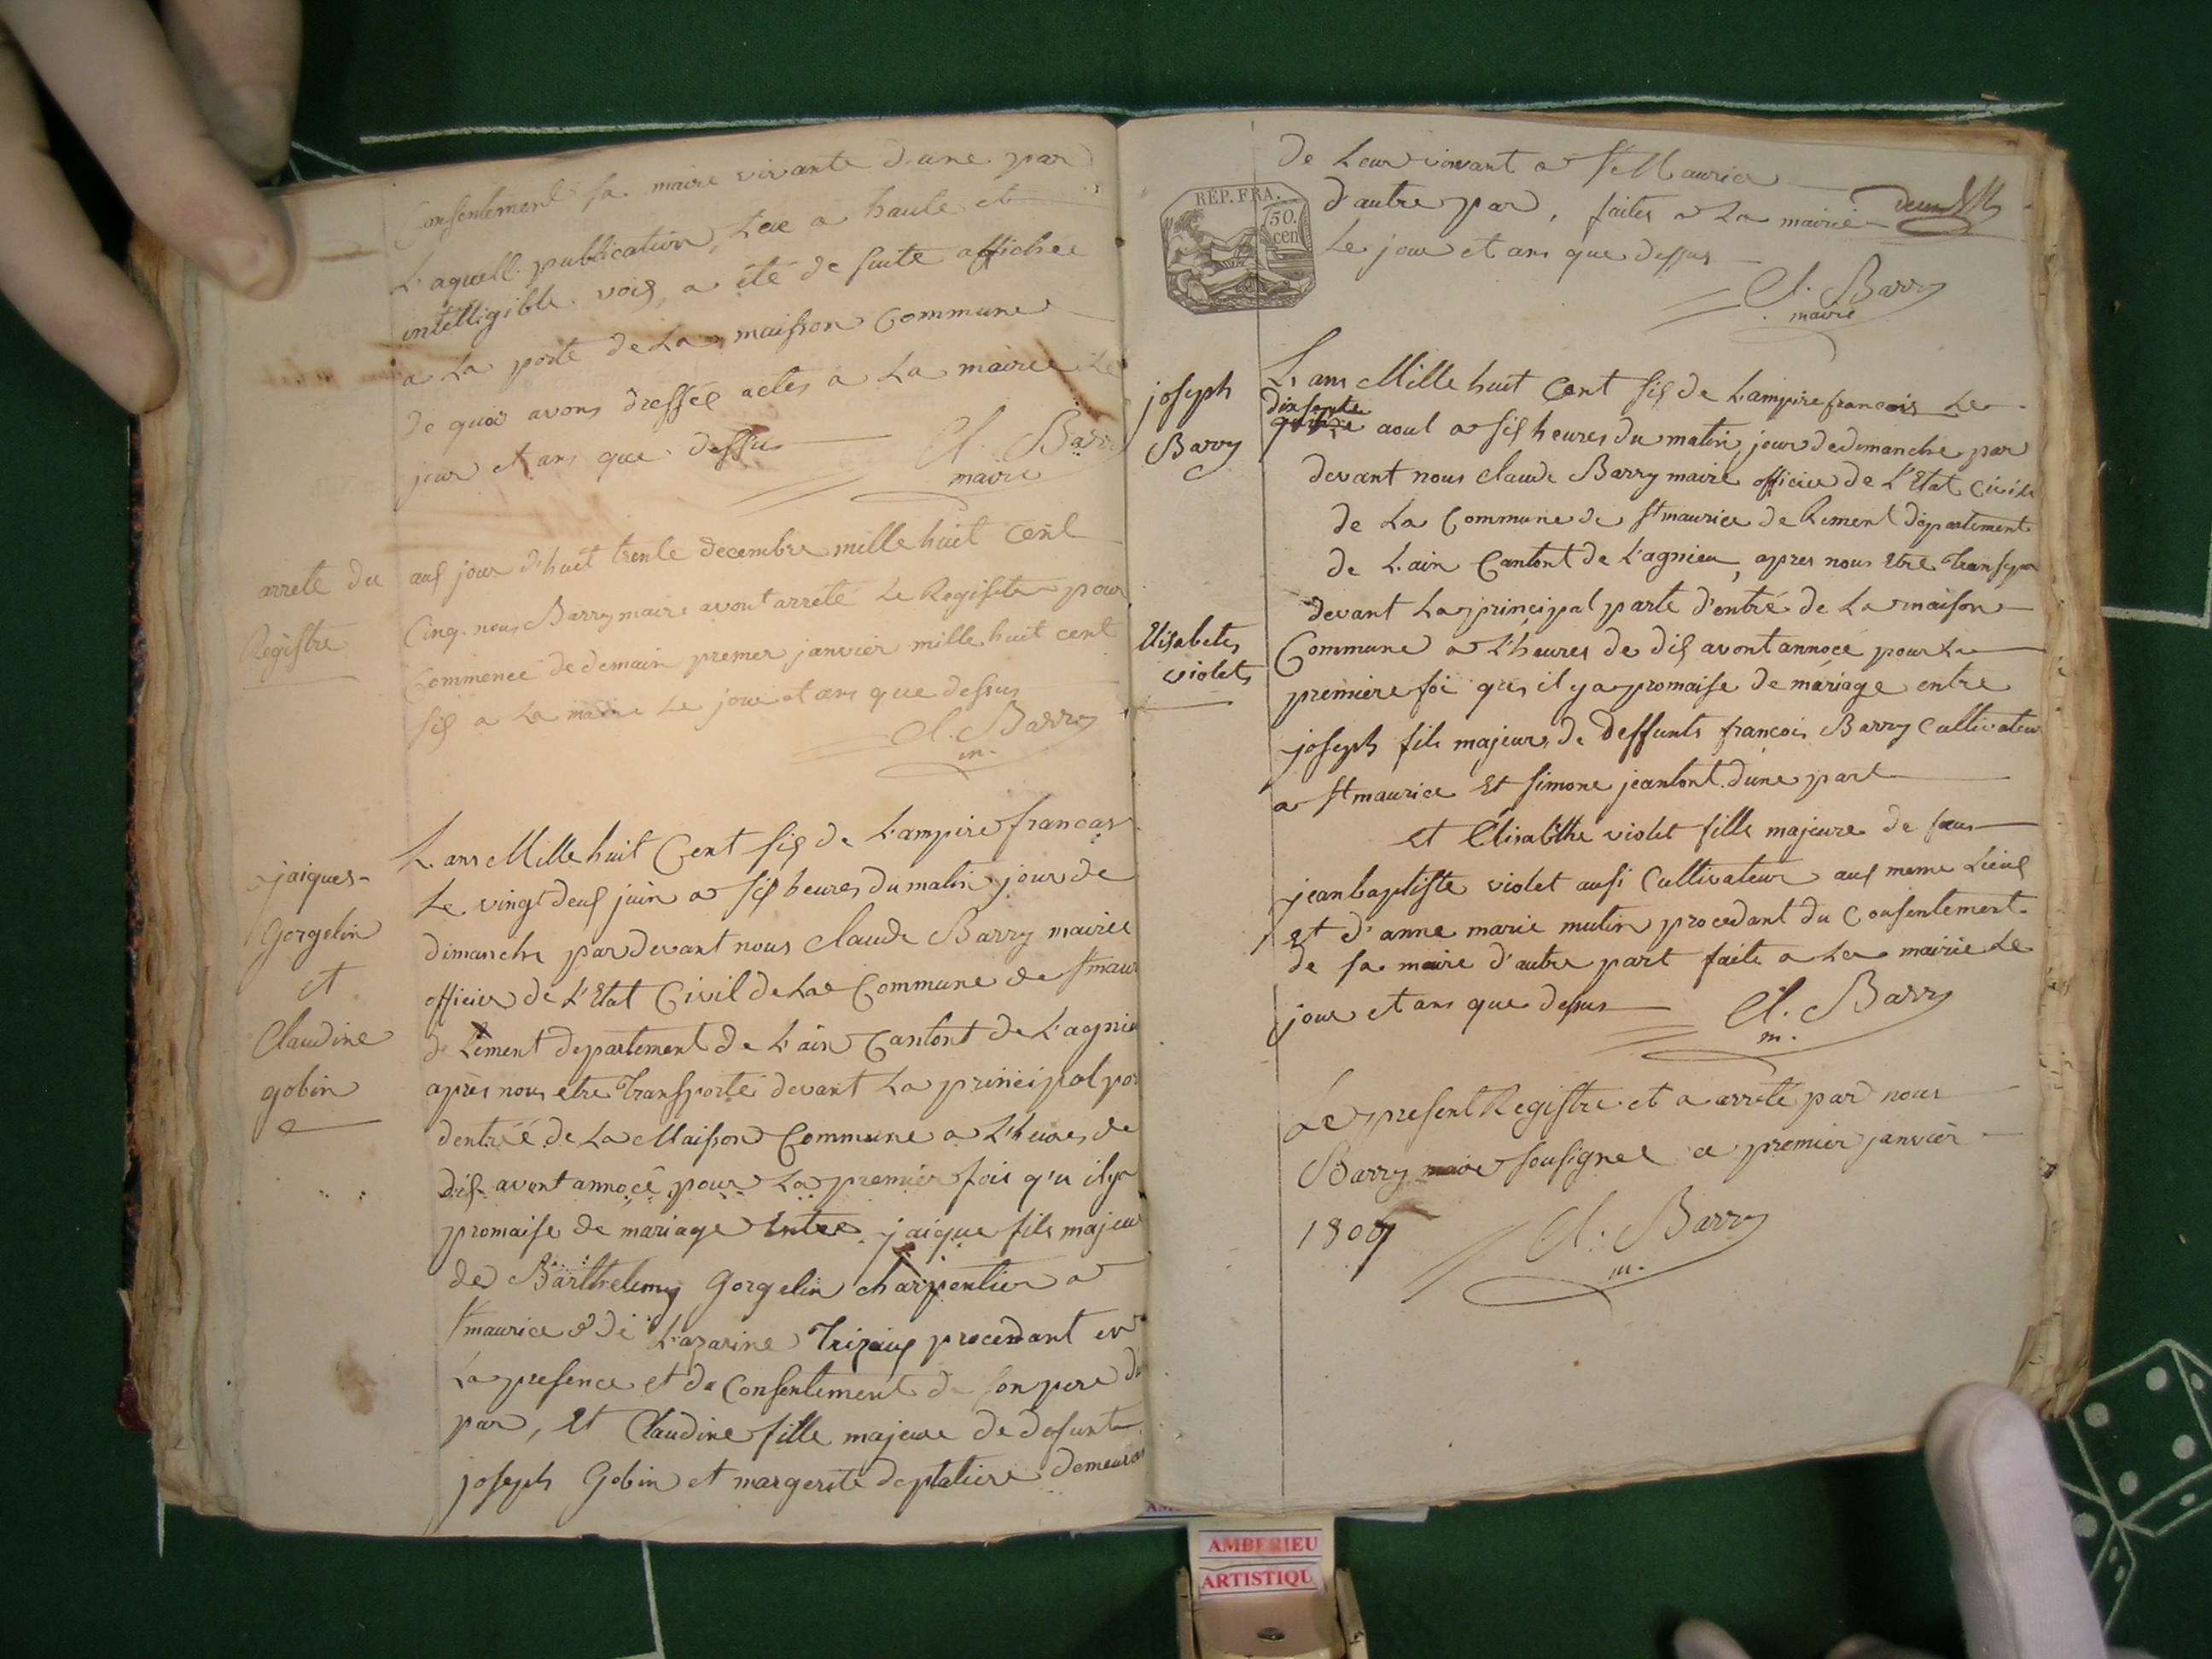 Consentement sa maire vivante d'une par
L'aquell publication, Lue a haute et
intelligible voix, a été de suite affichée
a La porte de La maisson Commune
de quoi avons dressée actes a La mairie Le
jour et ans que dessu
Cl. Barry
maire
arrete du
Registre
auf jour d'huit trente decembre mille huit Cent
Cinq. nous Barry maire avont arreté Le Registe pour
Commencé de demain premer janvier mille huit cent
six a La mairie Le jour et ans que dessus
Cl. Barry
m.
jaiques
Gorgelin
et
Claudine
gobin
L. ans Mille huit Cent six de L'ampire francais
Le vingt deux juin a six heures du matin jour de
dimanche par devant nous Claude Barry mairie
officier de L'Etat Civil de La Commune de St maur
de Rement departement de L'ain Cantont de L'agnie
après nous etre Transporté devant La principal por
dentréé de La Maisson Commune a L'heures de
dix avont annoçé pour La premier fois q'u il ya
promaise de mariage Entre jaique fils majeur
de Barthelemy Gorgelin charpentier a
St maurice & de Lazarine Trizaux procendant en
La presence et de Consentement de son pere du
par, Et Claudine fille majeure de defunt
joseph Gobin et margerite deplatiere demeuran
de Leur vivant a St Maurice
d'autre par, faites a La mairie
Le jour et ans que dessus
Cl. Barry
maire
RÉP. FRA.
50.
cen
joseph
Barry
Elisabetes
violets
L. ans Mille huit Cent six de L'ampire francois Le
dix septe
aout a six heures du matin, jour dedimanche par
devant nous claude Barry maire officier de L'Etat Civile
de La Commune de St maurice de Rement département
de L'ain Cantont de L'agnieu, apres nous Etre Transpor
devant La principal parte d'entré de La maison
Commune a L'heures de dix avont annocé pour La
premiere foi ques il ya promaise de mariage entre
joseph fils majeurs de Deffunts françois Barry Cultivateur
a St maurice Et simone jeantont d'une part
et Elisabethe violet fille majeure de feus
jean baptiste violet ausi Cultivateur aux meme Lieux
et d'anne marie mutin procedant du Consentement
de sa maire d'autre part faite a La mairie Le
jour et ans que desus
Cl. Barry
m.
Le present Registre et a arreté par nous
Barry maire sousignee ce premier janvier
1807
Cl. Barry
m.
AMBERIEU
ARTISTIQU